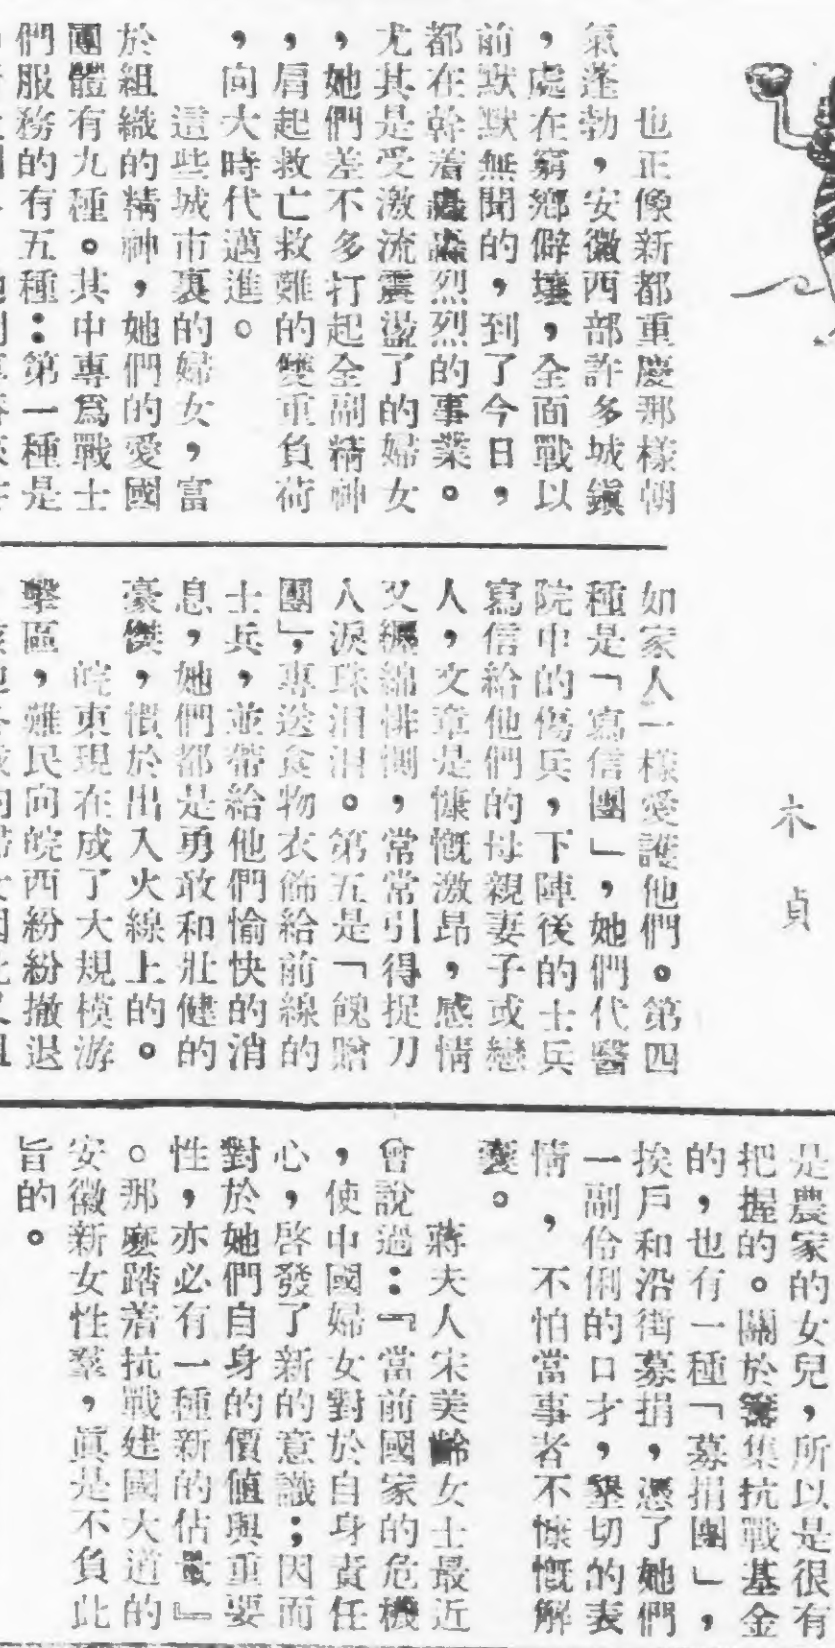 木貞
也正像新都重慶那樣朝
氣蓬勃，安徽西部許多城鎭
，處在窮鄉僻壤，全面戰以
前默默無聞的，到了今日，
都在幹着轟轟烈烈的事業。
尤其是受激流震盪了的婦女
，她們差不多打起全副精神
，肩起救亡救難的雙重負荷
，向大時代邁進。
這些城市裏的婦女，富
於組織的精神，她們的愛國
團體有九種。其中專爲戰士
們服務的有五種：第一種是
如家人一樣愛護他們。第四
種是「寫信團」，她們代醫
院中的傷兵，下陣後的士兵
寫信給他們的母親妻子或戀
人，文章是慷慨激昂，感情
又纏綿悱惻，常常引得捉刀
人淚珠汨汨。第五是「餽贈
團」，專送食物衣飾給前線的
士兵，並帶給他們愉快的消
息，她們都是勇敢和壯健的
豪傑，慣於出入火線上的。
皖東現在成了大規模游
擊區，難民向皖西紛紛撤退
是農家的女兒，所以是很有
把握的。關於籌集抗戰基金
的，也有一種「募捐團」，
挨戶和沿街募捐，憑了她們
一副伶俐的口才，墾切的表
情，不怕當事者不慷慨解
囊。
蔣夫人宋美齡女士最近
曾說過：『當前國家的危機
，使中國婦女對於自身責任
心，啓發了新的意識；因而
對於她們自身的價値與重要
性，亦必有一種新的估量』
。那麼踏着抗戰建國大道的
安徽新女性羣，眞是不負此
旨的。